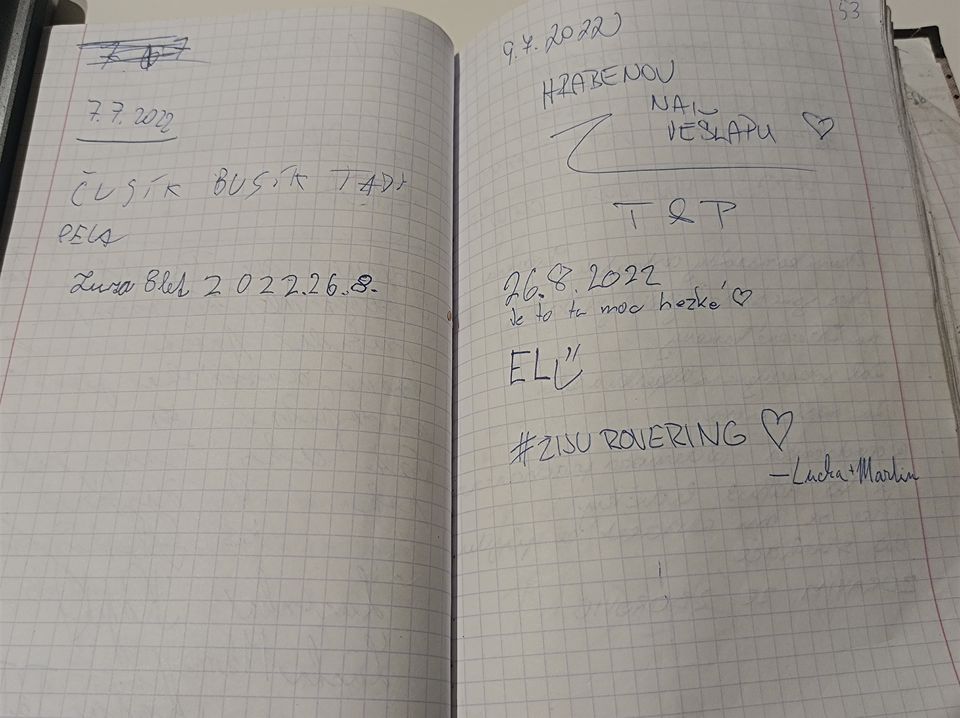 7.7.2022
ČUSÍK BUSÍK TADY
PEČA
Zuza 8 let 2022.26.8.
53
9.7.2022
HRABENOV
VEŠLAPU ♡
T & P
26.8.2022
Je to tu moc hezké ♡
ELL
#ZIJU ROVERING ♡
– Lucka + Martin